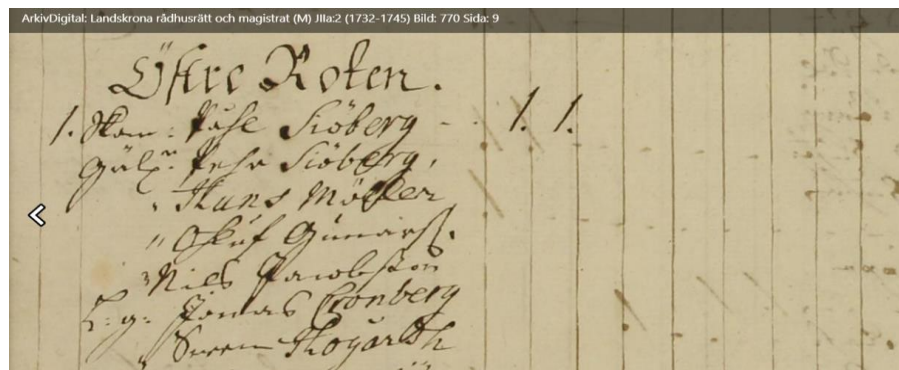 ArkivDigital: Landskrona rådhusrätt och magistrat (M) JIIa:2 (1732-1745) Bild: 770 Sida: 9
Öfre Roten.
1. Skom: Påhl Siöberg - - 1. 1.
Pehr Siöberg,
" Hans Möller
" Oluf
" Nils Jacobsson
L: g: Jonas Cronberg
" Sören